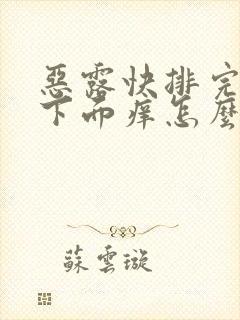 惡露快排完
下面痒怎麼
蘇雲璇